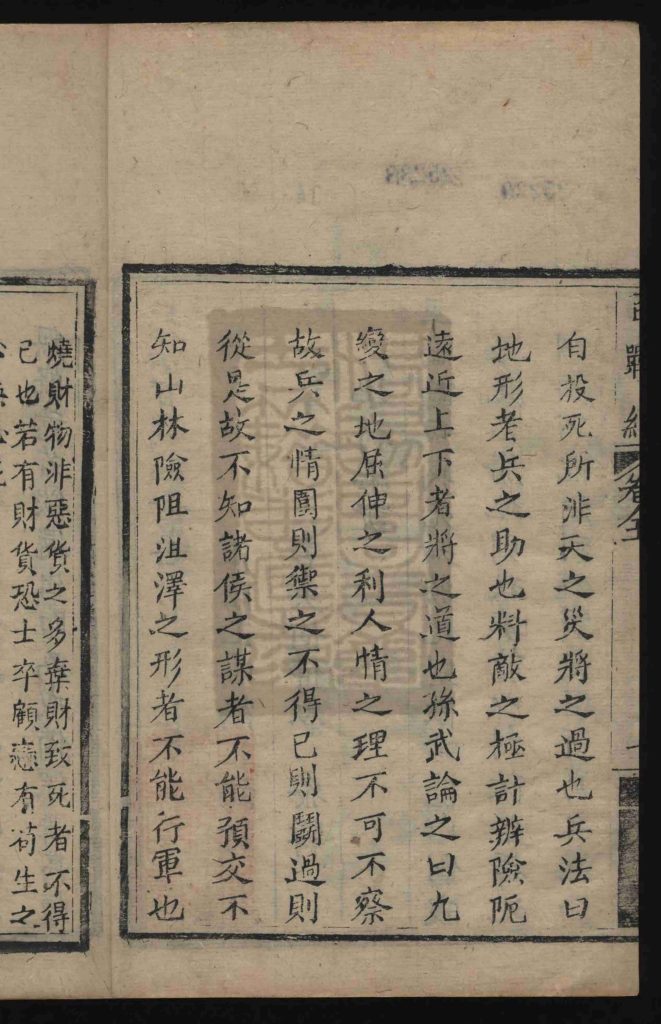 自投死所非天之災將之過也兵法曰
地形者兵之助也料敵之極計辨險阨
遠近上下者將之道也孫武論之曰九
變之地屈伸之利人情之理不可不察
故兵之情圍則禦之不得已則鬭過則
從是故不知諸侯之謀者不能預交不
知山林險阻沮澤之形者不能行軍也
燒財物非惡貨之多棄財致死者不得
已也若有財貨恐士卒顧戀有苟生之